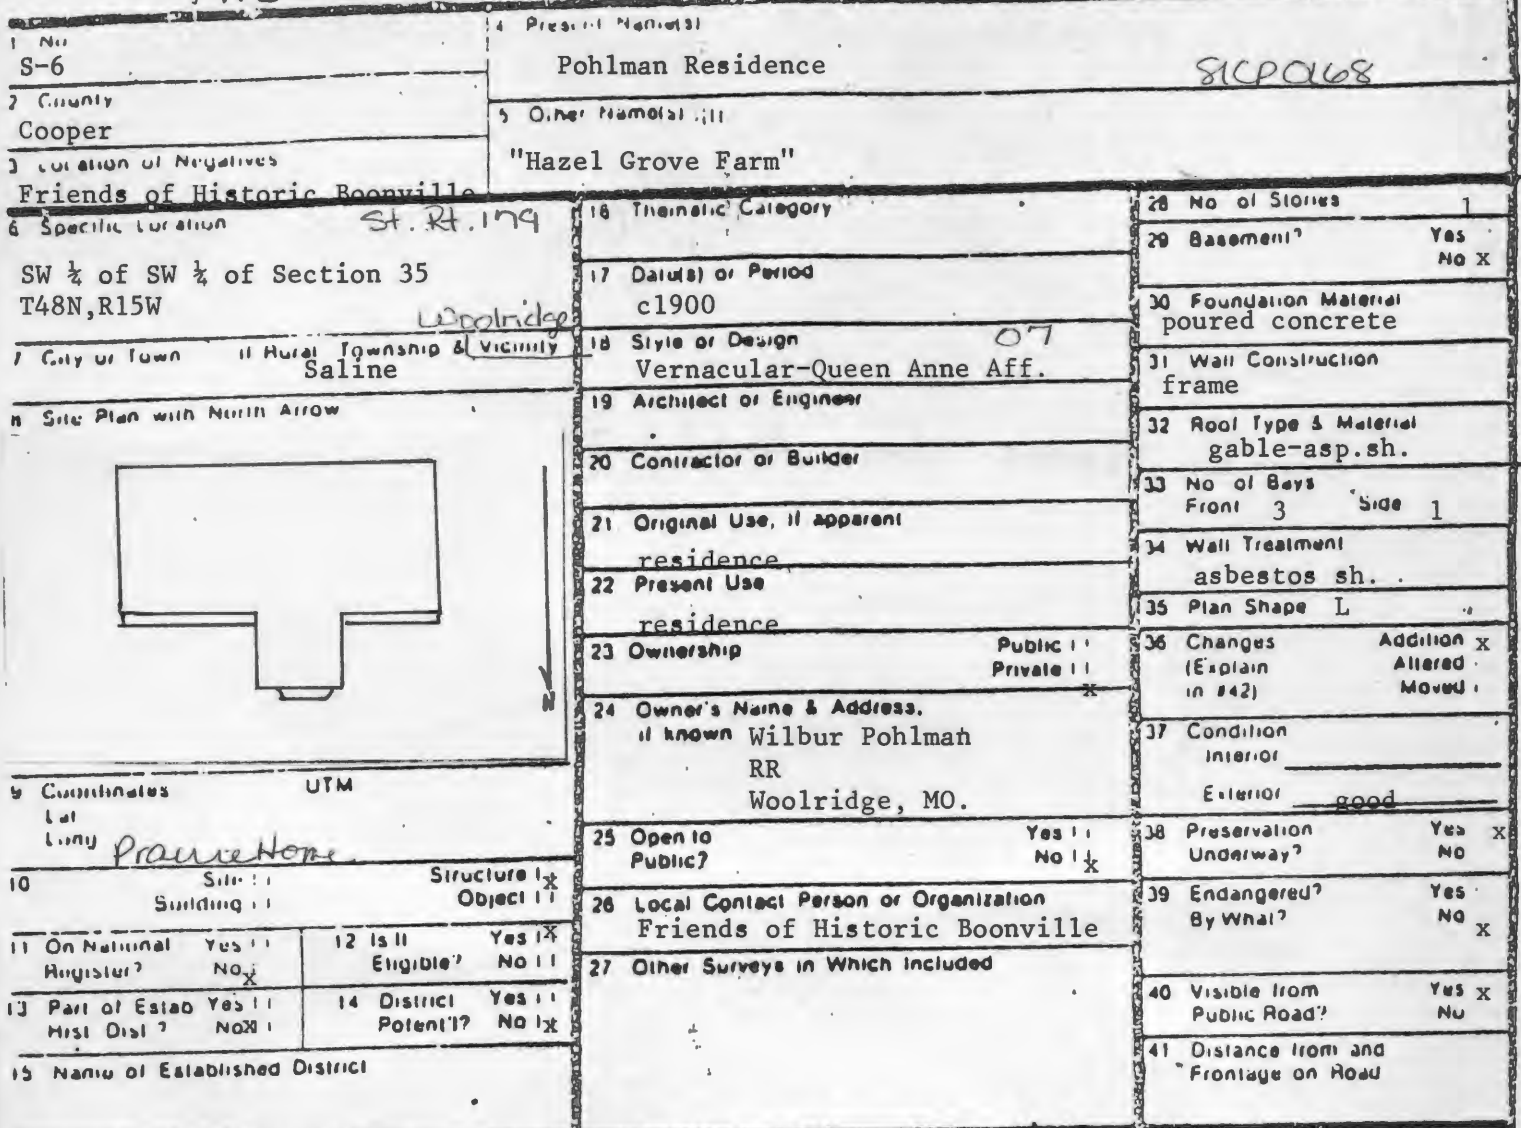 1 No
S-6
2 County
Cooper
3 Location of Negatives
Friends of Historic Boonville
4 Present Name(s)
Pohlman Residence
5 Other Name(s)
"Hazel Grove Farm"
6 Specific Location
St. Rt. 179
SW ¼ of SW ¼ of Section 35
T48N,R15W
Woolridge
7 City or Town If Rural Township & Vicinity
Saline
8 Site Plan with North Arrow
N
9 Coordinates UTM
Lat
Long
Prairie Home
10 Site Structure x
Building Object
11 On National Register? Yes No x
12 Is It Eligible? Yes x No
13 Part of Estab Hist Dist? Yes No x
14 District Potent'l? Yes No x
15 Name of Established District
16 Thematic Category
17 Date(s) or Period
c1900
18 Style or Design 07
Vernacular-Queen Anne Aff.
19 Architect or Engineer
20 Contractor or Builder
21 Original Use, if apparent
residence
22 Present Use
residence
23 Ownership Public
Private x
24 Owner's Name & Address,
if known Wilbur Pohlman
RR
Woolridge, MO.
25 Open to Yes
Public? No x
26 Local Contact Person or Organization
Friends of Historic Boonville
27 Other Surveys in Which Included
28 No of Stories 1
29 Basement? Yes
No x
30 Foundation Material
poured concrete
31 Wall Construction
frame
32 Roof Type & Material
gable-asp.sh.
33 No of Bays
Front 3 Side 1
34 Wall Treatment
asbestos sh.
35 Plan Shape L
36 Changes Addition x
(Explain Altered
in #42) Moved
37 Condition
Interior
Exterior good
38 Preservation Yes x
Underway? No
39 Endangered? Yes
By What? No x
40 Visible from Yes x
Public Road? No
41 Distance from and
Frontage on Road